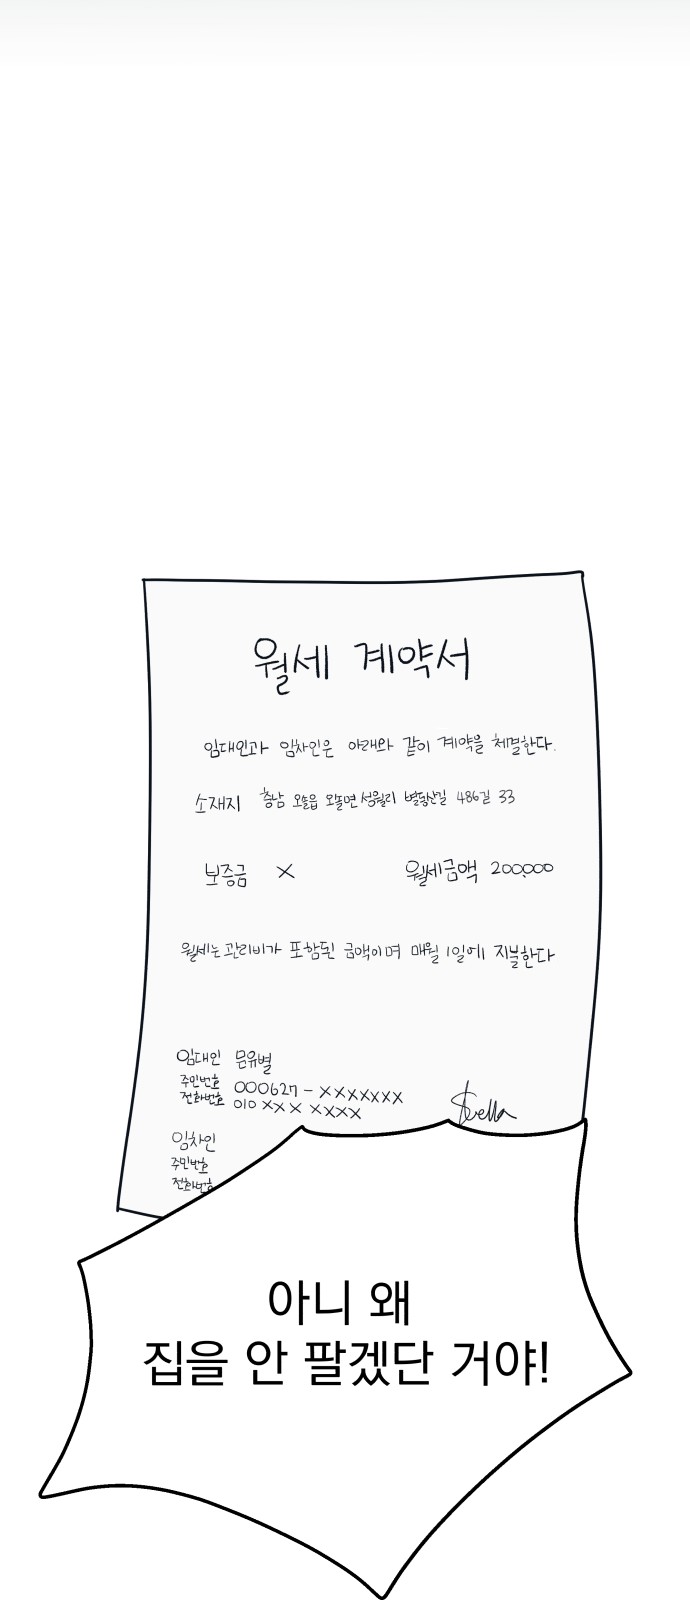 월세 계약서
임대인과 임차인은 아래와 같이 계약을 체결한다.
소재지 충남 오솔읍 오솔면 성월리 별동산길 486길 33
보증금 × 월세금액 200,000
월세는 관리비가 포함된 금액이며 매월 1일에 지불한다
임대인 문유별
주민번호 000627-×××××××
전화번호 010 ××× ××××
Stella
임차인
주민번호
전화번호
아니 왜
집을 안 팔겠단 거야!